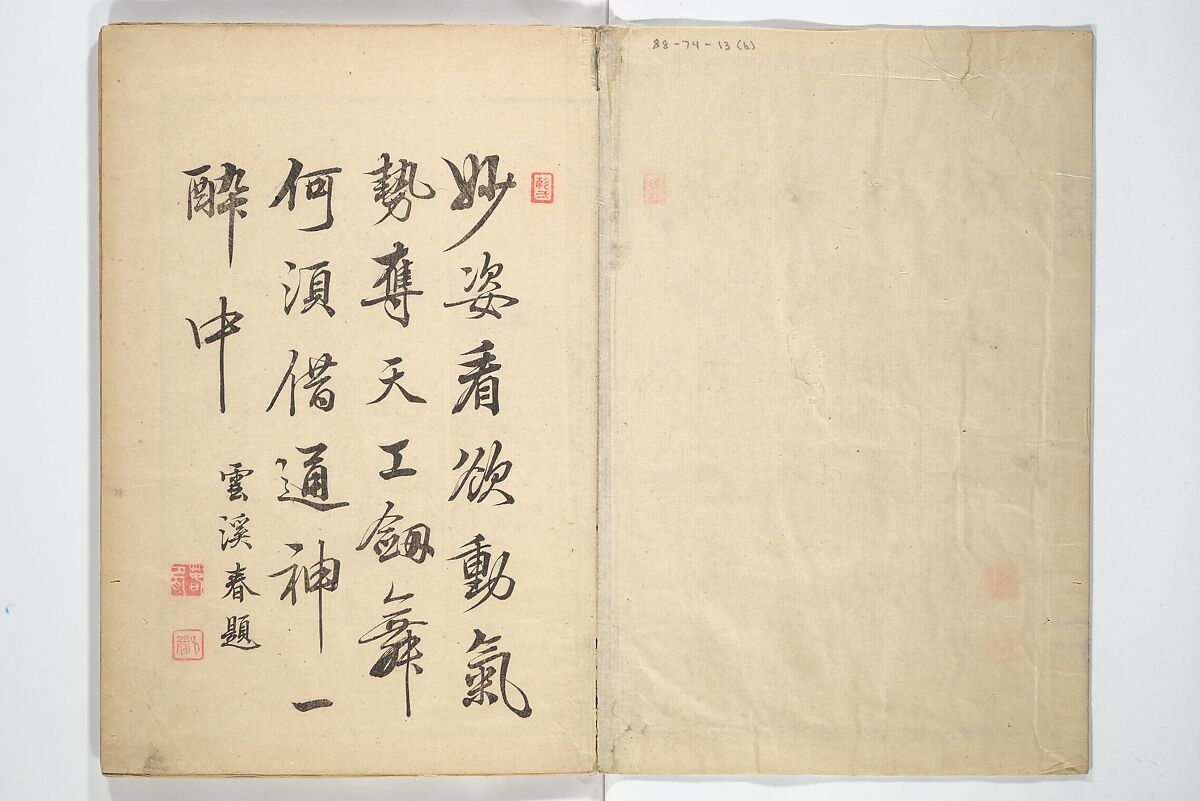 88-74-13(b)
妙姿看欲動氣
勢奪天工劔舞
何須借通神一
酔中
雲溪春題